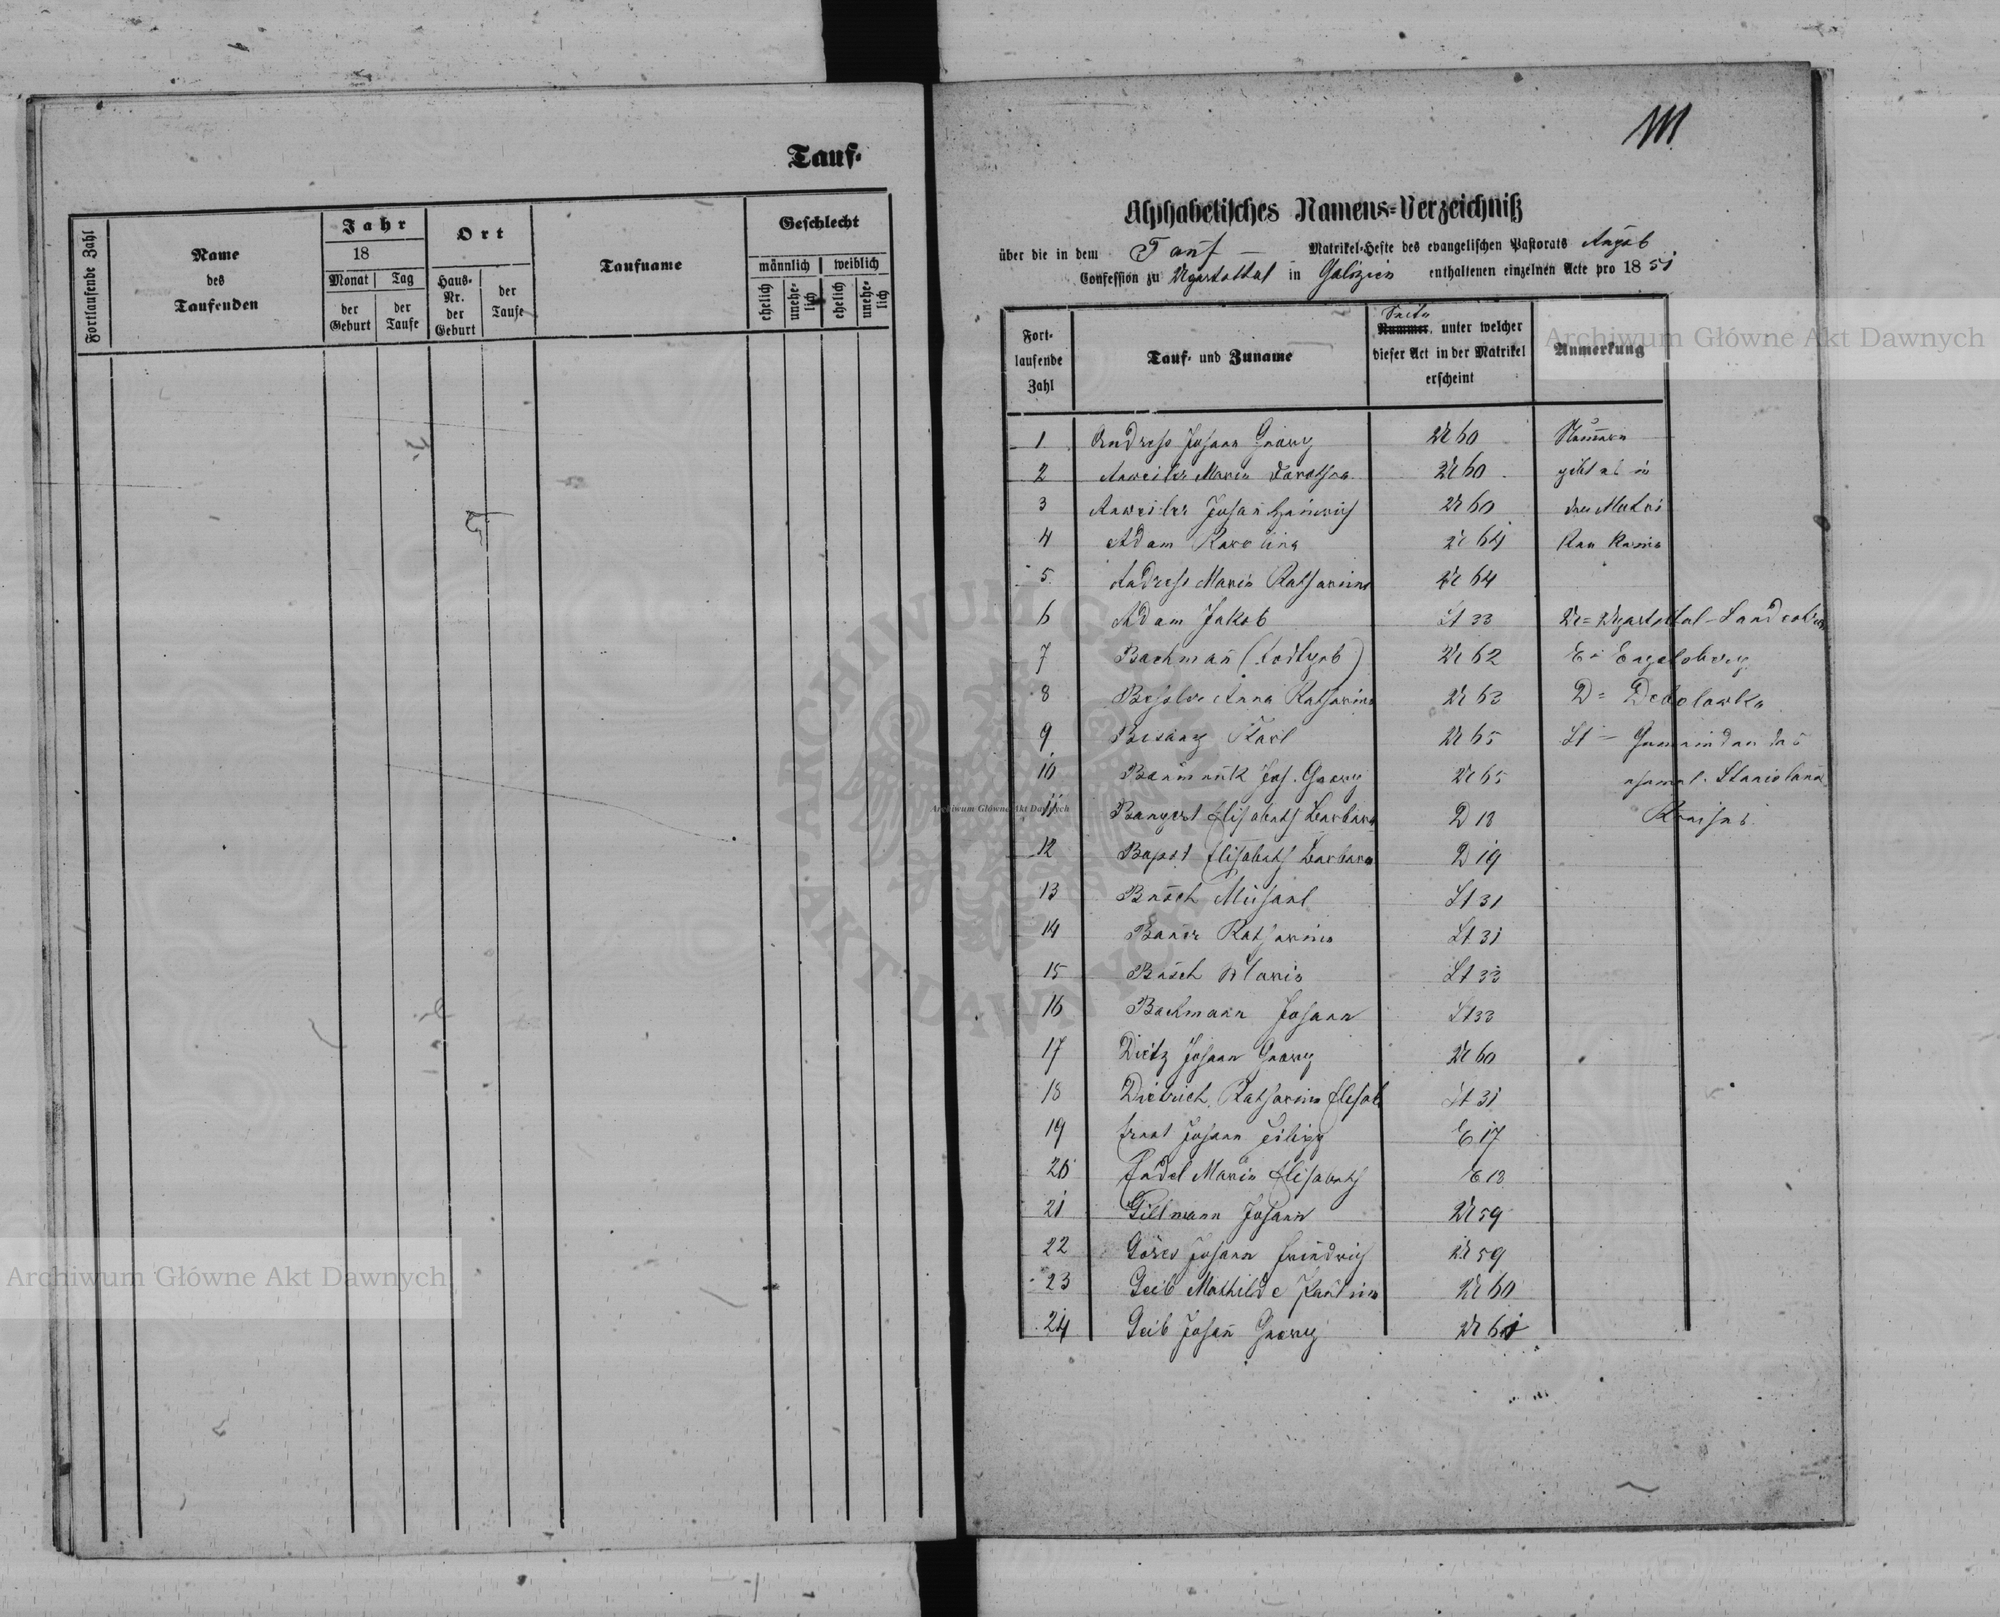 Tauf-
Fortlaufende Zahl
Name
des
Taufenden
Jahr
18
Monat
Tag
der
Geburt
der
Taufe
Ort
Haus-
Nr.
der
Geburt
der
Taufe
Taufname
Geschlecht
männlich
weiblich
ehelich
unehe-
lich
ehelich
unehe-
lich
Alphabetisches Namens-Verzeichniß
über die in dem Tauf — Matrikel-Hefte des evangelischen Pastorats Augsb
Confession zu Ugartsthal in Galizien enthaltenen einzelnen Acte pro 1851
Fort-
laufende
Zahl
Tauf- und Zuname
Seite
Nummer, unter welcher
dieser Act in der Matrikel
erscheint
Anmerkung
1 Andreß Johann Georg U 60 Nummern
2 Anweiler Maria Dorothea U 60 gibt es in
3 Anweiler Johan Heinrich U 60 der Matri
4 Adam Karolina U 64 kan keine
5 Andreß Maria Katharina U 64
6 Adam Jakob St 33 U = Ugartsthal-Landestreu
7 Bachman (todtgeb) U 62 E = Engelsberg
8 Beßler Anna Katharina U 63 D = Debolowka
9 Bisanz Karl U 65 St = Gemeinden des
10 Joh. Georg U 65 ehemal. Stanislauer
11 Bangert Elisabeth Barbara D 18 Kreises
12 Bapst Elisabeth Barbara D 19
13 Busch Michael St 31
14 Bauer Katharina St 31
15 Busch Maria St 33
16 Bachmann Johann St 33
17 Dietz Johann Georg U 60
18 Dietrich Katharina Elisab St 31
19 Ernst Johann Filipp E 17
20 Maria Elisabeth E 18
21 Gillmann Johann U 59
22 Göres Johann Friedrich U 59
23 Geib Mathilde Paulina U 60
24 Geib Johan Georg U 61
Archiwum Główne Akt Dawnych
Archiwum Główne Akt Dawnych
Archiwum Główne Akt Dawnych
ARCHIWUM GŁÓWNE AKT DAWNYCH